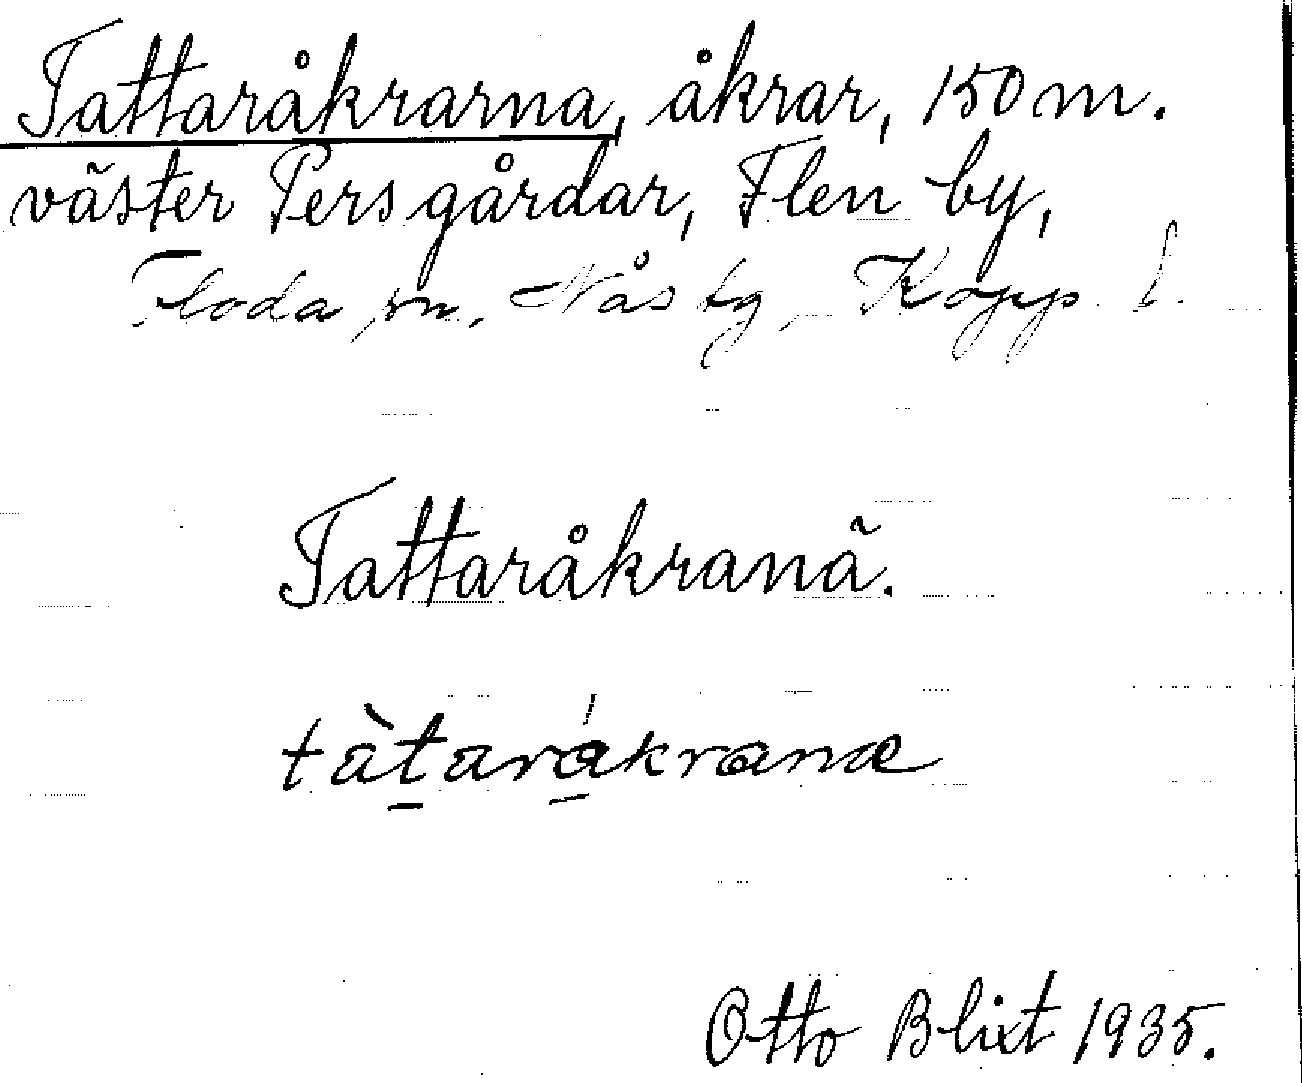 Tattaråkrarna, åkrar, 150 m.
väster Persgårdar, Flen by,
Floda sn, Nås tg, Kopp. l.
Tattaråkranã.
tàtaråkranæ
Otto Blixt 1935.